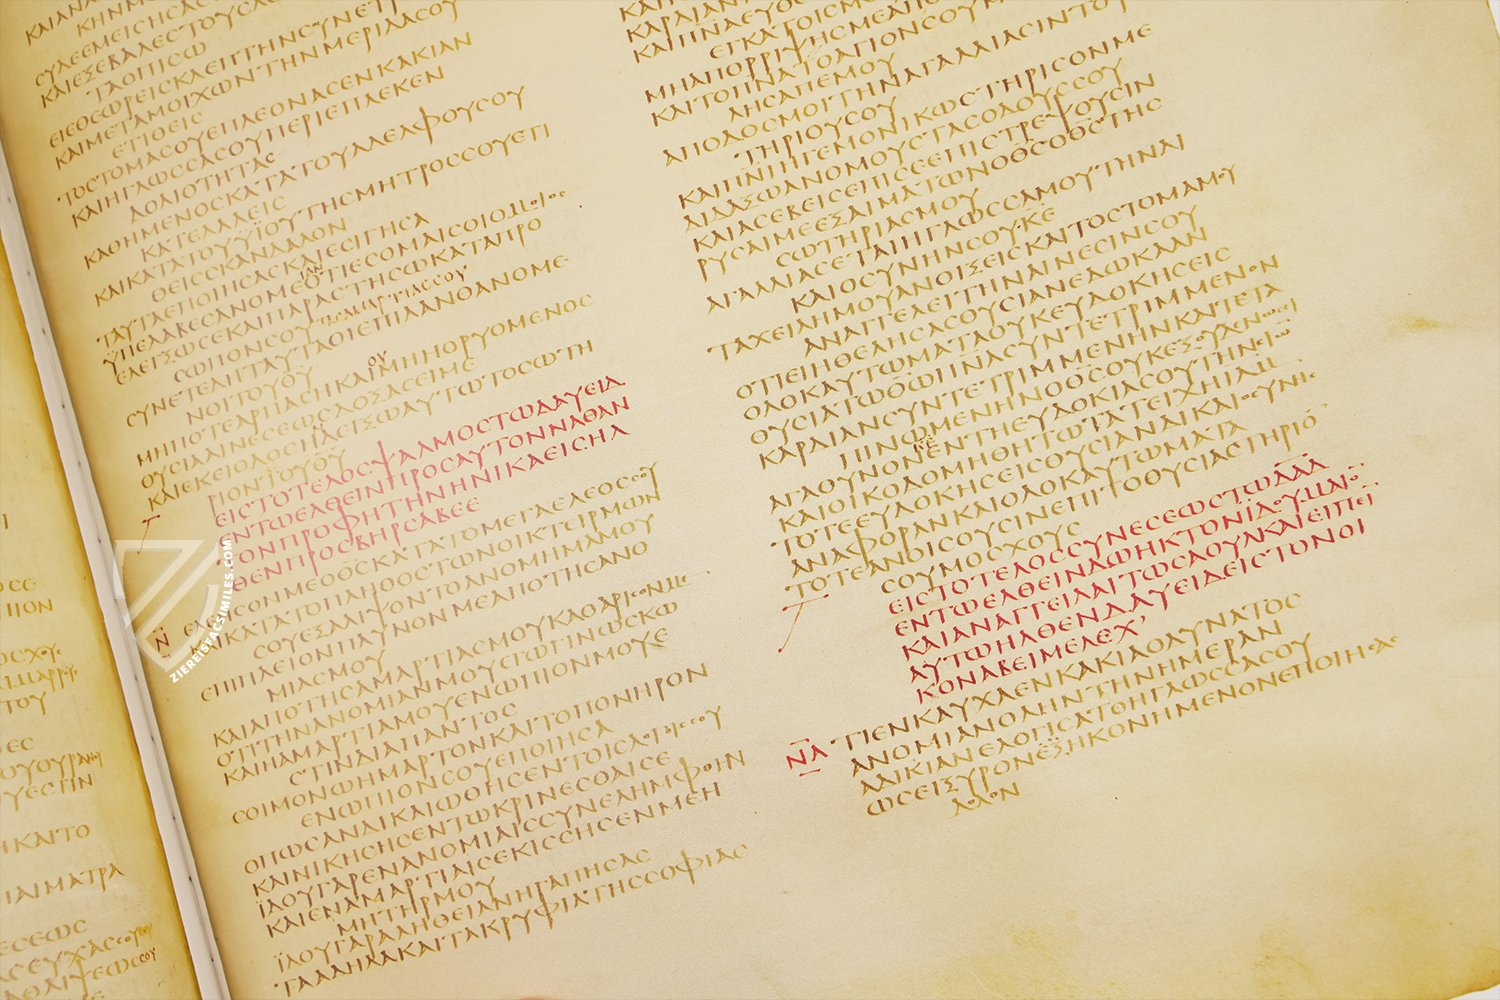 ΤΑΟΠΙϹΩ
ΕΙΕΘΕΩΡΕΙϹΚΛΕΠΤΗΝϹΥΝΕΤΡΕ
ΚΑΙΜΕΤΑΜΟΙΧΩΝΤΗΝΜΕΡΙΔΑϹΟΥ
ΕΤΙΘΕΙϹ
ΤΟϹΤΟΜΑϹΟΥΕΠΛΕΟΝΑϹΕΝΚΑΚΙΑΝ
ΚΑΙΗΓΛΩϹϹΑϹΟΥΠΕΡΙΕΠΛΕΚΕΝ
ΔΟΛΙΟΤΗΤΑϹ
ΚΑΘΗΜΕΝΟϹΚΑΤΑΤΟΥΑΔΕΛΦΟΥϹΟΥ
ΚΑΤΕΛΑΛΕΙϹ
ΚΑΙΚΑΤΑΤΟΥΥΪΟΥΤΗϹΜΗΤΡΟϹϹΟΥΕΤΙ
ΘΕΙϹϹΚΑΝΔΑΛΟΝ
ΤΑΥΤΑΕΠΟΙΗϹΑϹΚΑΙΕϹΙΓΗϹΑ
ΫΠΕΛΑΒΕϹΑΝΟΜΕΙΑΝΟΤΙΕϹΟΜΑΙϹΟΙΟΜΟΙΟϹ
ΕΛΕΓΞΩϹΕΚΑΙΠΑΡΑϹΤΗϹΩΚΑΤΑΠΡΟ
ϹΩΠΟΝϹΟΥ ΤΑϹΑΜΑΡΤΙΑϹϹΟΥ
ϹΥΝΕΤΕΔΗΤΑΥΤΑΟΙΕΠΙΛΑΝΘΑΝΟΜΕ
ΝΟΙΤΟΥΘΥ
ΜΗΠΟΤΕΑΡΠΑϹΗΚΑΙΟΥΜΗΗΟΡΥΟΜΕΝΟϹ
ΘΥϹΙΑΑΙΝΕϹΕΩϹΔΟΞΑϹΕΙΜΕ
ΚΑΙΕΚΕΙΟΔΟϹΗΔΕΙΞΩΑΥΤΩΤΟϹΩΤΗ
ΡΙΟΝΤΟΥΘΥ
ΕΙϹΤΟΤΕΛΟϹΨΑΛΜΟϹΤΩΔΑΥΕΙΔ
ΕΝΤΩΕΛΘΕΙΝΠΡΟϹΑΥΤΟΝΝΑΘΑΝ
ΤΟΝΠΡΟΦΗΤΗΝΗΝΙΚΑΕΙϹΗΛ
ΘΕΝΠΡΟϹΒΗΡϹΑΒΕΕ
Ν ΕΛΕΗϹΟΝΜΕΟΘϹΚΑΤΑΤΟΜΕΓΑΕΛΕΟϹϹΟΥ
ΚΑΙΚΑΤΑΤΟΠΛΗΘΟϹΤΩΝΟΙΚΤΕΙΡΜΩΝ
ϹΟΥΕΞΑΛΙΨΟΝΤΟΑΝΟΜΗΜΑΜΟΥ
ΕΠΙΠΛΕΙΟΝΠΛΥΝΟΝΜΕΑΠΟΤΗϹΑΝΟ
ΜΙΑϹΜΟΥ
ΚΑΙΑΠΟΤΗϹΑΜΑΡΤΙΑϹΜΟΥΚΑΘΑΡΙϹΟΝΜΕ
ΟΤΙΤΗΝΑΝΟΜΙΑΝΜΟΥΕΓΩΓΙΝΩϹΚΩ
ΚΑΙΗΑΜΑΡΤΙΑΜΟΥΕΝΩΠΙΟΝΜΟΥΕ
ϹΤΙΝΔΙΑΠΑΝΤΟϹ
ϹΟΙΜΟΝΩΗΜΑΡΤΟΝΚΑΙΤΟΠΟΝΗΡΟΝ
ΕΝΩΠΙΟΝϹΟΥΕΠΟΙΗϹΑ
ΟΠΩϹΑΝΔΙΚΑΙΩΘΗϹΕΝΤΟΙϹΛΟΓΟΙϹϹΟΥ
ΚΑΙΝΙΚΗϹΗϹΕΝΤΩΚΡΙΝΕϹΘΑΙϹΕ
ΪΔΟΥΓΑΡΕΝΑΝΟΜΙΑΙϹϹΥΝΕΛΗΜΦΘΗΝ
ΚΑΙΕΝΑΜΑΡΤΙΑΙϹΕΚΙϹϹΗϹΕΝΜΕΗ
ΜΗΤΗΡΜΟΥ
ΪΔΟΥΓΑΡΑΛΗΘΕΙΑΝΗΓΑΠΗϹΑϹ
ΤΑΑΔΗΛΑΚΑΙΤΑΚΡΥΦΙΑΤΗϹϹΟΦΙΑϹ
ΜΗΑΠΟΡΡΙΨΗϹΜΕΑΠΟ
ΚΑΙΤΟΠΝΑΤΟΑΓΙΟΝϹΟΥΜΗ
ΛΗϹΑΠΕΜΟΥ
ΑΠΟΔΟϹΜΟΙΤΗΝΑΓΑΛΛΙΑϹΙΝΤΟΥ
ΤΗΡΙΟΥϹΟΥ
ΚΑΙΠΝΙΗΓΕΜΟΝΙΚΩϹΤΗΡΙϹΟΝΜΕ
ΔΙΔΑΞΩΑΝΟΜΟΥϹΤΑϹΟΔΟΥϹϹΟΥ
ΚΑΙΑϹΕΒΕΙϹΕΠΙϹΕΕΠΙϹΤΡΕΨΟΥϹΙΝ
ΡΥϹΑΙΜΕΕΞΑΙΜΑΤΩΝΟΘϹΟΘϹΤΗϹ
ϹΩΤΗΡΙΑϹΜΟΥ
ΑΓΑΛΛΙΑϹΕΤΑΙΗΓΛΩϹϹΑΜΟΥΤΗΝΔΙ
ΚΑΙΟϹΥΝΗΝϹΟΥΚΕ
ΤΑΧΕΙΛΗΜΟΥΑΝΟΙΞΕΙϹΚΑΙΤΟϹΤΟΜΑΜΟΥ
ΑΝΑΓΓΕΛΕΙΤΗΝΑΙΝΕϹΙΝϹΟΥ
ΟΤΙΕΙΗΘΕΛΗϹΑϹΘΥϹΙΑΝΕΔΩΚΑΑΝ
ΟΛΟΚΑΥΤΩΜΑΤΑΟΥΚΕΥΔΟΚΗϹΕΙϹ
ΘΥϹΙΑΤΩΘΩΠΝΑϹΥΝΤΕΤΡΙΜΜΕΝΟΝ
ΚΑΡΔΙΑΝϹΥΝΤΕΤΡΙΜΜΕΝΗΝΚΑΙΤΕΤΑ
ΠΙΝΩΜΕΝΗΝΟΘϹΟΥΚΕΞΟΥΔΕΝΩϹΕΙ
ΑΓΑΘΥΝΟΝΕΝΤΗΕΥΔΟΚΙΑϹΟΥΤΗΝϹΙΩ
ΚΑΙΟΙΚΟΔΟΜΗΘΗΤΩΤΑΤΕΙΧΗΙΛΗΜ
ΤΟΤΕΕΥΔΟΚΗϹΕΙϹΘΥϹΙΑΝΔΙΚΑΙΟϹΥΝΗϹ
ΑΝΑΦΟΡΑΝΚΑΙΟΛΟΚΑΥΤΩΜΑΤΑ
ΤΟΤΕΑΝΟΙϹΟΥϹΙΝΕΠΙΤΟΘΥϹΙΑϹΤΗΡΙΟ
ϹΟΥΜΟϹΧΟΥϹ
ΕΙϹΤΟΤΕΛΟϹϹΥΝΕϹΕΩϹΤΩΔΑΔ
ΕΝΤΩΕΛΘΕΙΝΔΩΗΚΤΟΝΙΔΟΥΜΑΙΟ
ΚΑΙΑΝΑΓΓΕΙΛΑΙΤΩϹΑΟΥΛΚΑΙΕΙΠΕΙ
ΑΥΤΩΗΛΘΕΝΔΑΥΕΙΔΕΙϹΤΟΝΟΙ
ΚΟΝΑΒΕΙΜΕΛΕΧ’
ΝΑ ΤΙΕΝΚΑΥΧΑΕΝΚΑΚΙΑΟΔΥΝΑΤΟϹ
ΑΝΟΜΙΑΝΟΛΗΝΤΗΝΗΜΕΡΑΝ
ΑΔΙΚΙΑΝΕΛΟΓΙϹΑΤΟΗΓΛΩϹϹΑϹΟΥ
ΩϹΕΙΞΥΡΟΝΕΞΗΚΟΝΗΜΕΝΟΝΕΠΟΙΗϹΑϹ
ΔΟΛΟΝ
ZIEREISFACSIMILES.COM